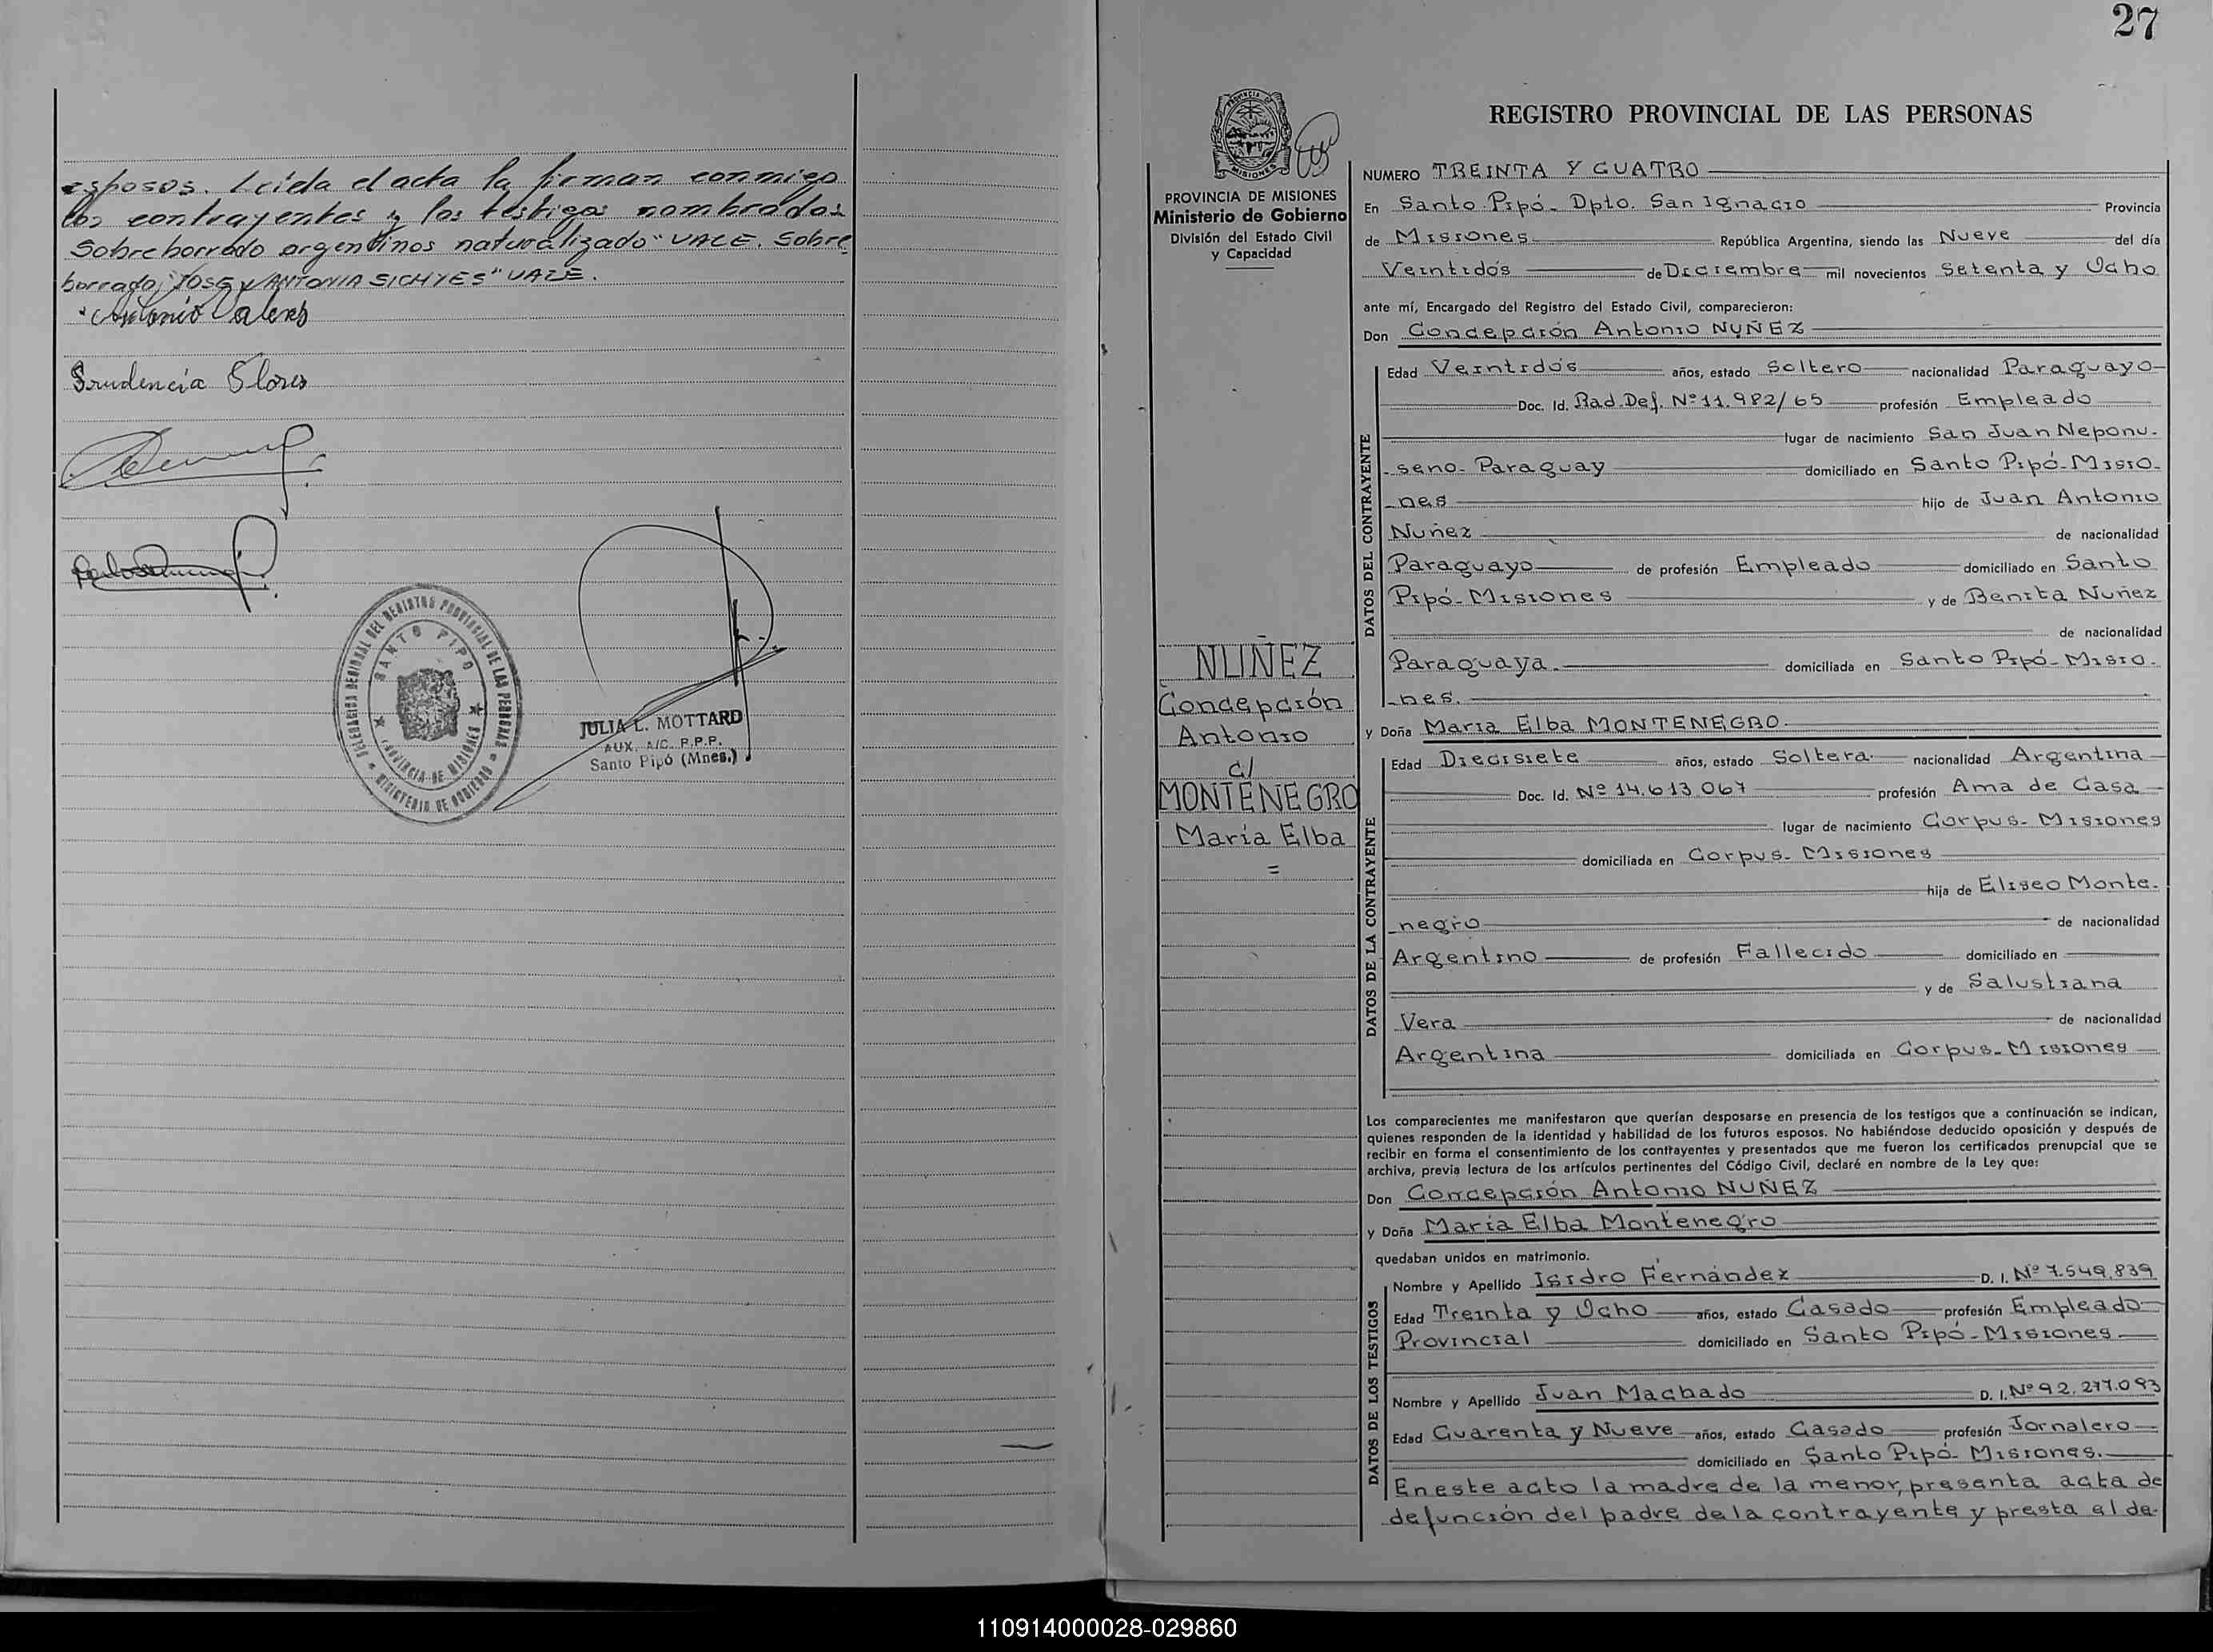 esposos. Leída el acta la firman conmigo
los contrayentes y los testigos nombrados
Sobreborrado argentinos naturalizado" VALE. Sobre
borrado, "JOSE y ANTONIA SICHYES" VALE.
Antonio Valers
Prudencia Flores
DELEGACION REGIONAL DEL REGISTRO PROVINCIAL DE LAS PERSONAS
SANTO PIPO
PROVINCIA DE MISIONES
MINISTERIO DE GOBIERNO
JULIA L. MOTTARD
AUX. A/C. R.P.P.
Santo Pipó (Mnes.)
27
PROVINCIA DE MISIONES
Ministerio de Gobierno
División del Estado Civil
y Capacidad
NUÑEZ
Concepción
Antonio
c/
MONTENEGRO
María Elba
=
REGISTRO PROVINCIAL DE LAS PERSONAS
NUMERO TREINTA Y CUATRO
En Santo Pipó- Dpto. San Ignacio Provincia
de Misiones República Argentina, siendo las Nueve del día
Veintidós de Diciembre mil novecientos Setenta y Ocho
ante mí, Encargado del Registro del Estado Civil, comparecieron:
Don Concepción Antonio NUÑEZ
DATOS DEL CONTRAYENTE
Edad Veintidós años, estado Soltero nacionalidad Paraguayo
Doc. Id. Rad. Def. Nº 11.982/65 profesión Empleado
lugar de nacimiento San Juan Neponu-
-seno- Paraguay domiciliado en Santo Pipó-Misio-
-nes hijo de Juan Antonio
Nuñez de nacionalidad
Paraguayo de profesión Empleado domiciliado en Santo
Pipó-Misiones y de Benita Nuñez
de nacionalidad
Paraguaya. domiciliada en Santo Pipó-Misio-
-nes.
y Doña María Elba MONTENEGRO.
DATOS DE LA CONTRAYENTE
Edad Diecisiete años, estado Soltera. nacionalidad Argentina
Doc. Id. Nº 14.613.067 profesión Ama de Casa
lugar de nacimiento Corpus- Misiones
domiciliada en Corpus- Misiones
hija de Eliseo Monte-
-negro de nacionalidad
Argentino de profesión Fallecido domiciliado en
y de Salustiana
Vera de nacionalidad
Argentina domiciliada en Corpus-Misiones
Los comparecientes me manifestaron que querían desposarse en presencia de los testigos que a continuación se indican,
quienes responden de la identidad y habilidad de los futuros esposos. No habiéndose deducido oposición y después de
recibir en forma el consentimiento de los contrayentes y presentados que me fueron los certificados prenupcial que se
archiva, previa lectura de los artículos pertinentes del Código Civil, declaré en nombre de la Ley que:
Don Concepción Antonio NUÑEZ
y Doña María Elba Montenegro
quedaban unidos en matrimonio.
DATOS DE LOS TESTIGOS
Nombre y Apellido Isidro Fernández D. I. Nº 7.549.839
Edad Treinta y Ocho años, estado Casado profesión Empleado
Provincial domiciliado en Santo Pipó-Misiones
Nombre y Apellido Juan Machado D. I. Nº 92.277.093
Edad Cuarenta y Nueve años, estado Casado profesión Jornalero
domiciliado en Santo Pipó- Misiones.
En este acto la madre de la menor, presenta acta de
defunción del padre de la contrayente y presta el de-
110914000028-029860